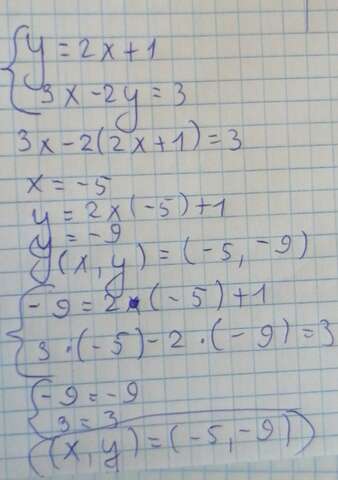 y = 2x+1
3x-2y = 3
3x-2(2x+1)=3
x = -5
y = 2x(-5)+1
y = -9
(x, y) = (-5, -9)
-9 = 2·(-5)+1
3·(-5)-2·(-9)=3
-9 = -9
3 = 3
(x, y) = (-5, -9)